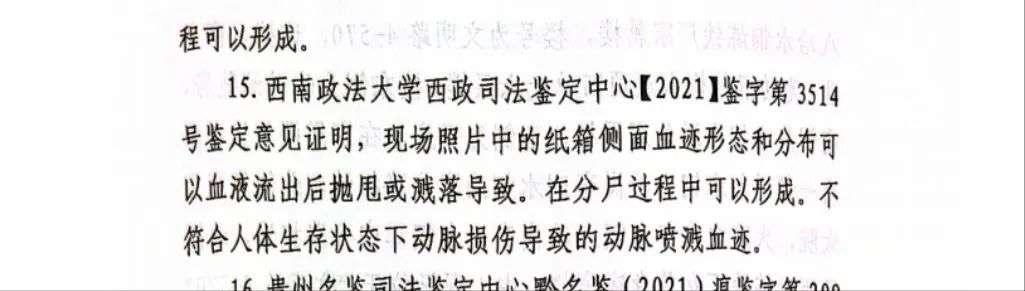 程可以形成。
15.西南政法大学西政司法鉴定中心【2021】鉴字第3514
号鉴定意见证明，现场照片中的纸箱侧面血迹形态和分布可
以血液流出后抛甩或溅落导致。在分尸过程中可以形成。不
符合人体生存状态下动脉损伤导致的动脉喷溅血迹。
16.贵州名鉴司法鉴定中心黔名鉴（2021）痕鉴字第